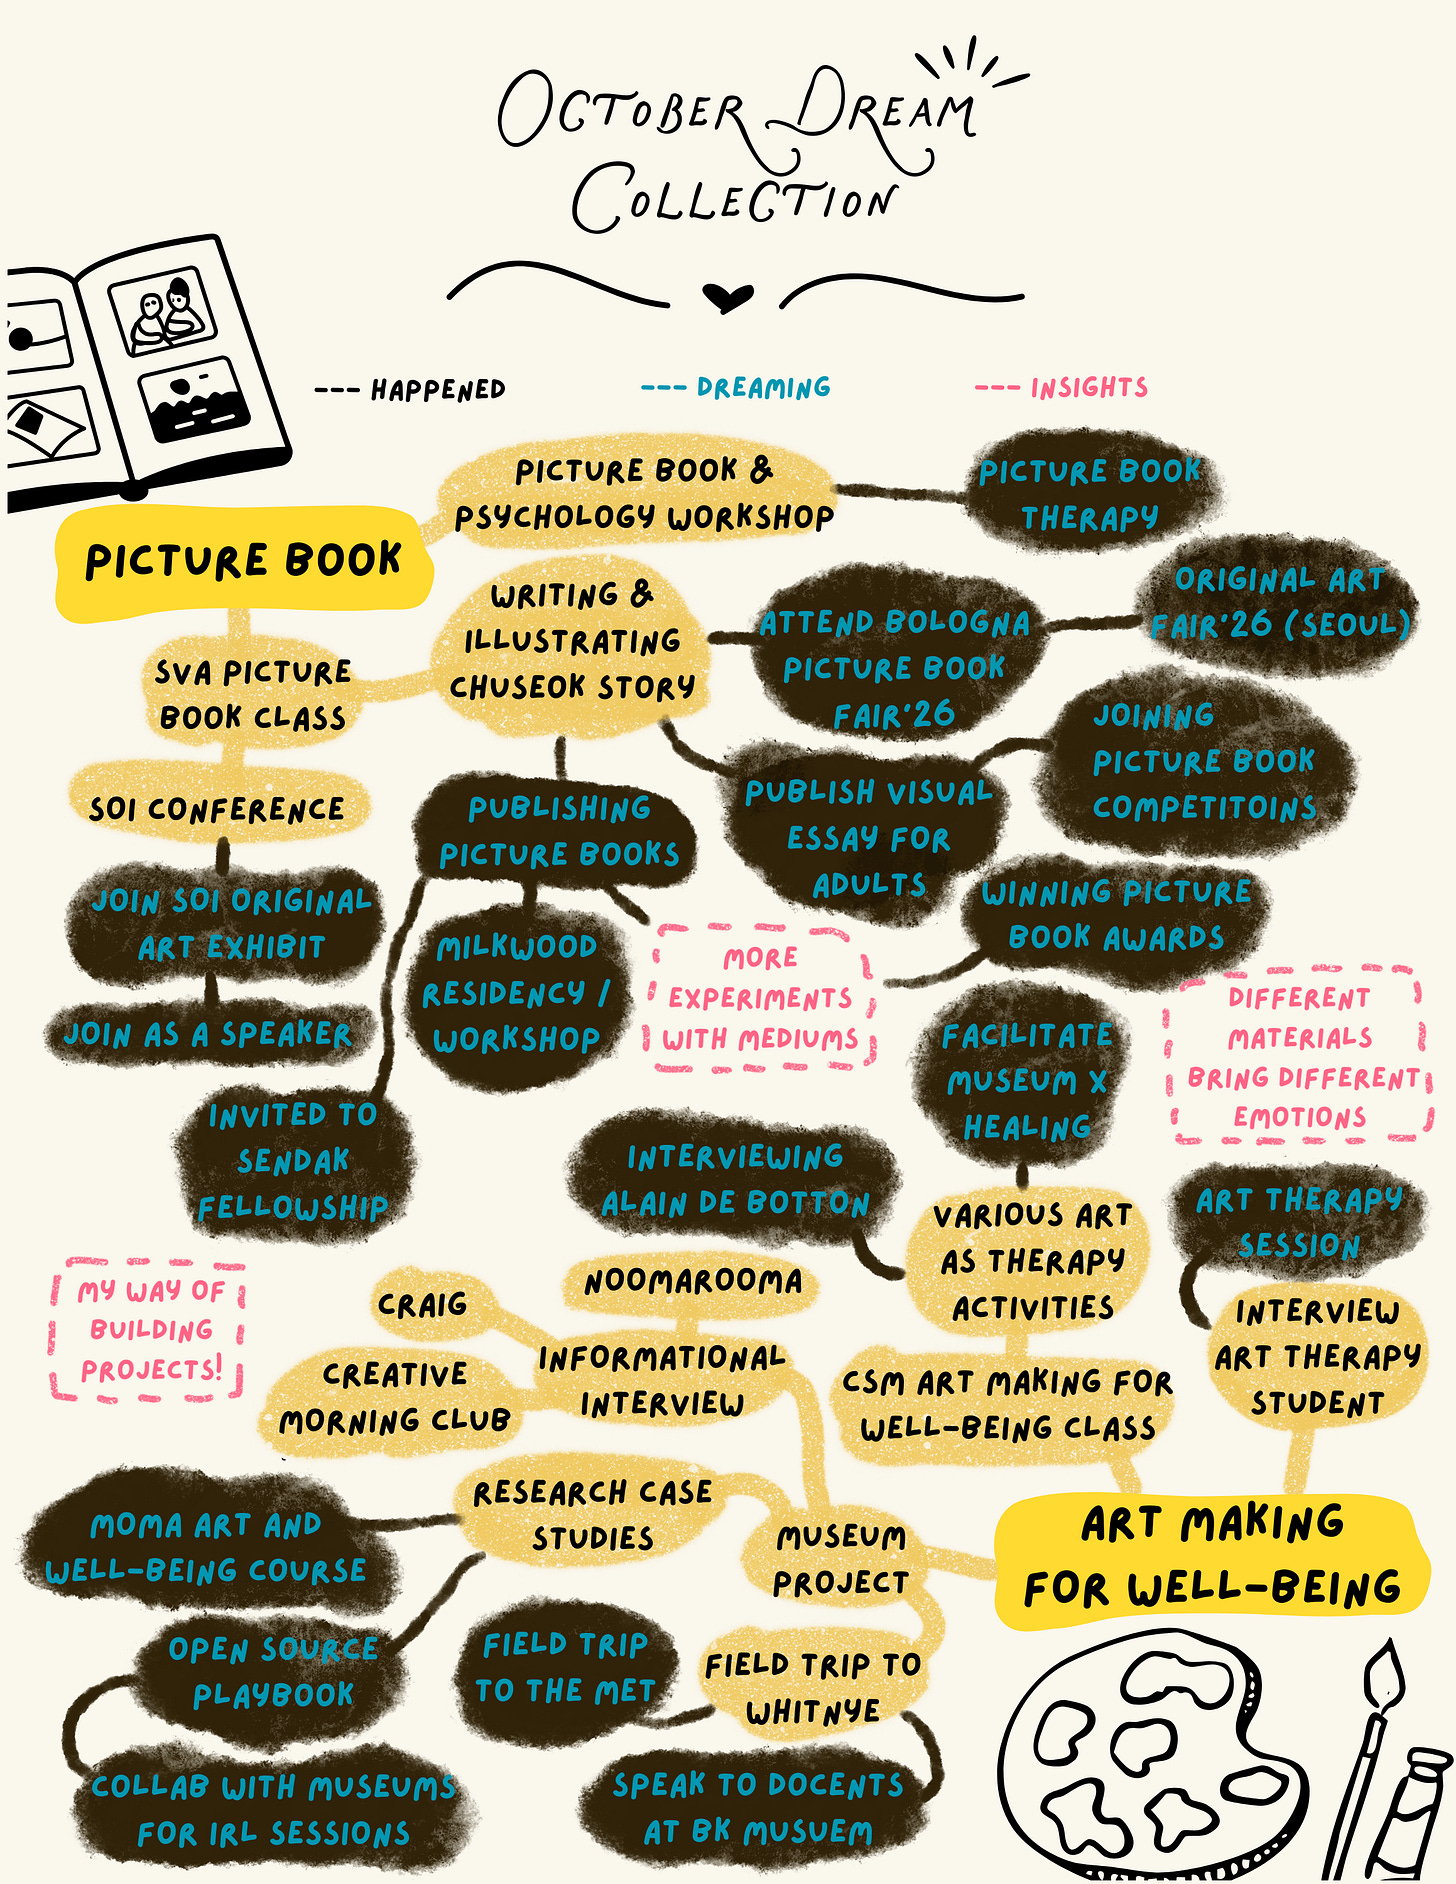 OCTOBER DREAM
COLLECTION
--- HAPPENED
--- DREAMING
--- INSIGHTS
PICTURE BOOK &
PSYCHOLOGY WORKSHOP
PICTURE BOOK
THERAPY
PICTURE BOOK
WRITING &
ILLUSTRATING
CHUSEOK STORY
ATTEND BOLOGNA
PICTURE BOOK
FAIR'26
ORIGINAL ART
FAIR'26 (SEOUL)
SVA PICTURE
BOOK CLASS
JOINING
PICTURE BOOK
COMPETITOINS
SOI CONFERENCE
PUBLISHING
PICTURE BOOKS
PUBLISH VISUAL
ESSAY FOR
ADULTS
JOIN SOI ORIGINAL
ART EXHIBIT
WINNING PICTURE
BOOK AWARDS
MILKWOOD
RESIDENCY /
WORKSHOP
MORE
EXPERIMENTS
WITH MEDIUMS
JOIN AS A SPEAKER
FACILITATE
MUSEUM X
HEALING
DIFFERENT
MATERIALS
BRING DIFFERENT
EMOTIONS
INVITED TO
SENDAK
FELLOWSHIP
INTERVIEWING
ALAIN DE BOTTON
VARIOUS ART
AS THERAPY
ACTIVITIES
ART THERAPY
SESSION
MY WAY OF
BUILDING
PROJECTS!
CRAIG
NOOMAROOMA
INFORMATIONAL
INTERVIEW
CREATIVE
MORNING CLUB
CSM ART MAKING FOR
WELL-BEING CLASS
INTERVIEW
ART THERAPY
STUDENT
RESEARCH CASE
STUDIES
MOMA ART AND
WELL-BEING COURSE
MUSEUM
PROJECT
ART MAKING
FOR WELL-BEING
OPEN SOURCE
PLAYBOOK
FIELD TRIP
TO THE MET
FIELD TRIP TO
WHITNYE
COLLAB WITH MUSEUMS
FOR IRL SESSIONS
SPEAK TO DOCENTS
AT BK MUSUEM